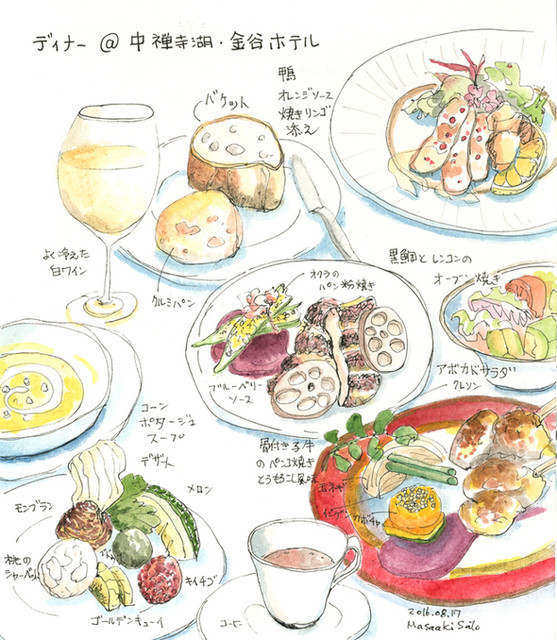 ディナー @ 中禅寺湖・金谷ホテル
鴨
オレンジソース
焼きリンゴ
添え
バケット
よく冷えた
白ワイン
クルミパン
オクラの
パン粉焼き
黒鯛とレンコンの
オーブン焼き
ブルーベリー
ソース
アボカドサラダ
クレソン
コーン
ポタージュ
スープ
骨付き子牛
のパン粉焼き
とうもろこし風味
玉ネギ
デザート
モンブラン
メロン
桃の
シャーベット
キイチゴ
ゴールデンキューイ
コーヒー
2016.08.17
Masaaki Sato